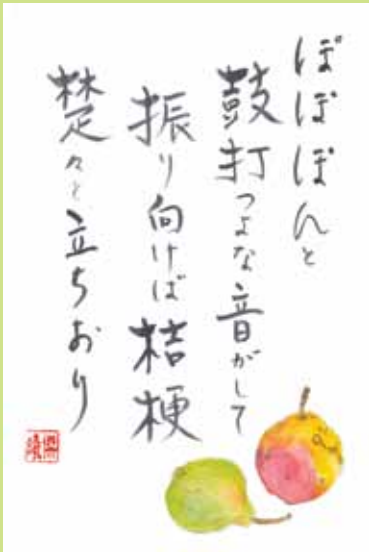 ぽぽぽんと
鼓打つよな音がして
振り向けば桔梗
楚々と立ちおり